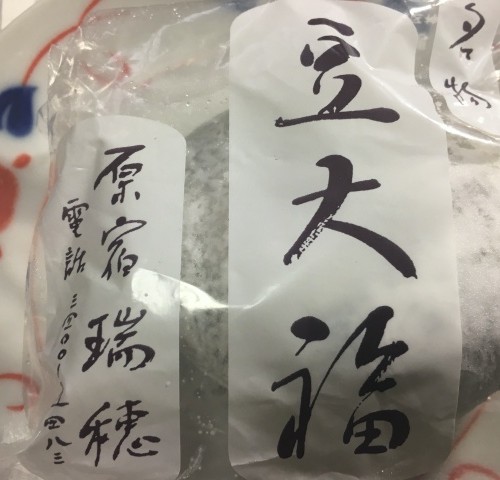 名物
豆大福
原宿瑞穂
電話 三四〇〇-五四八三